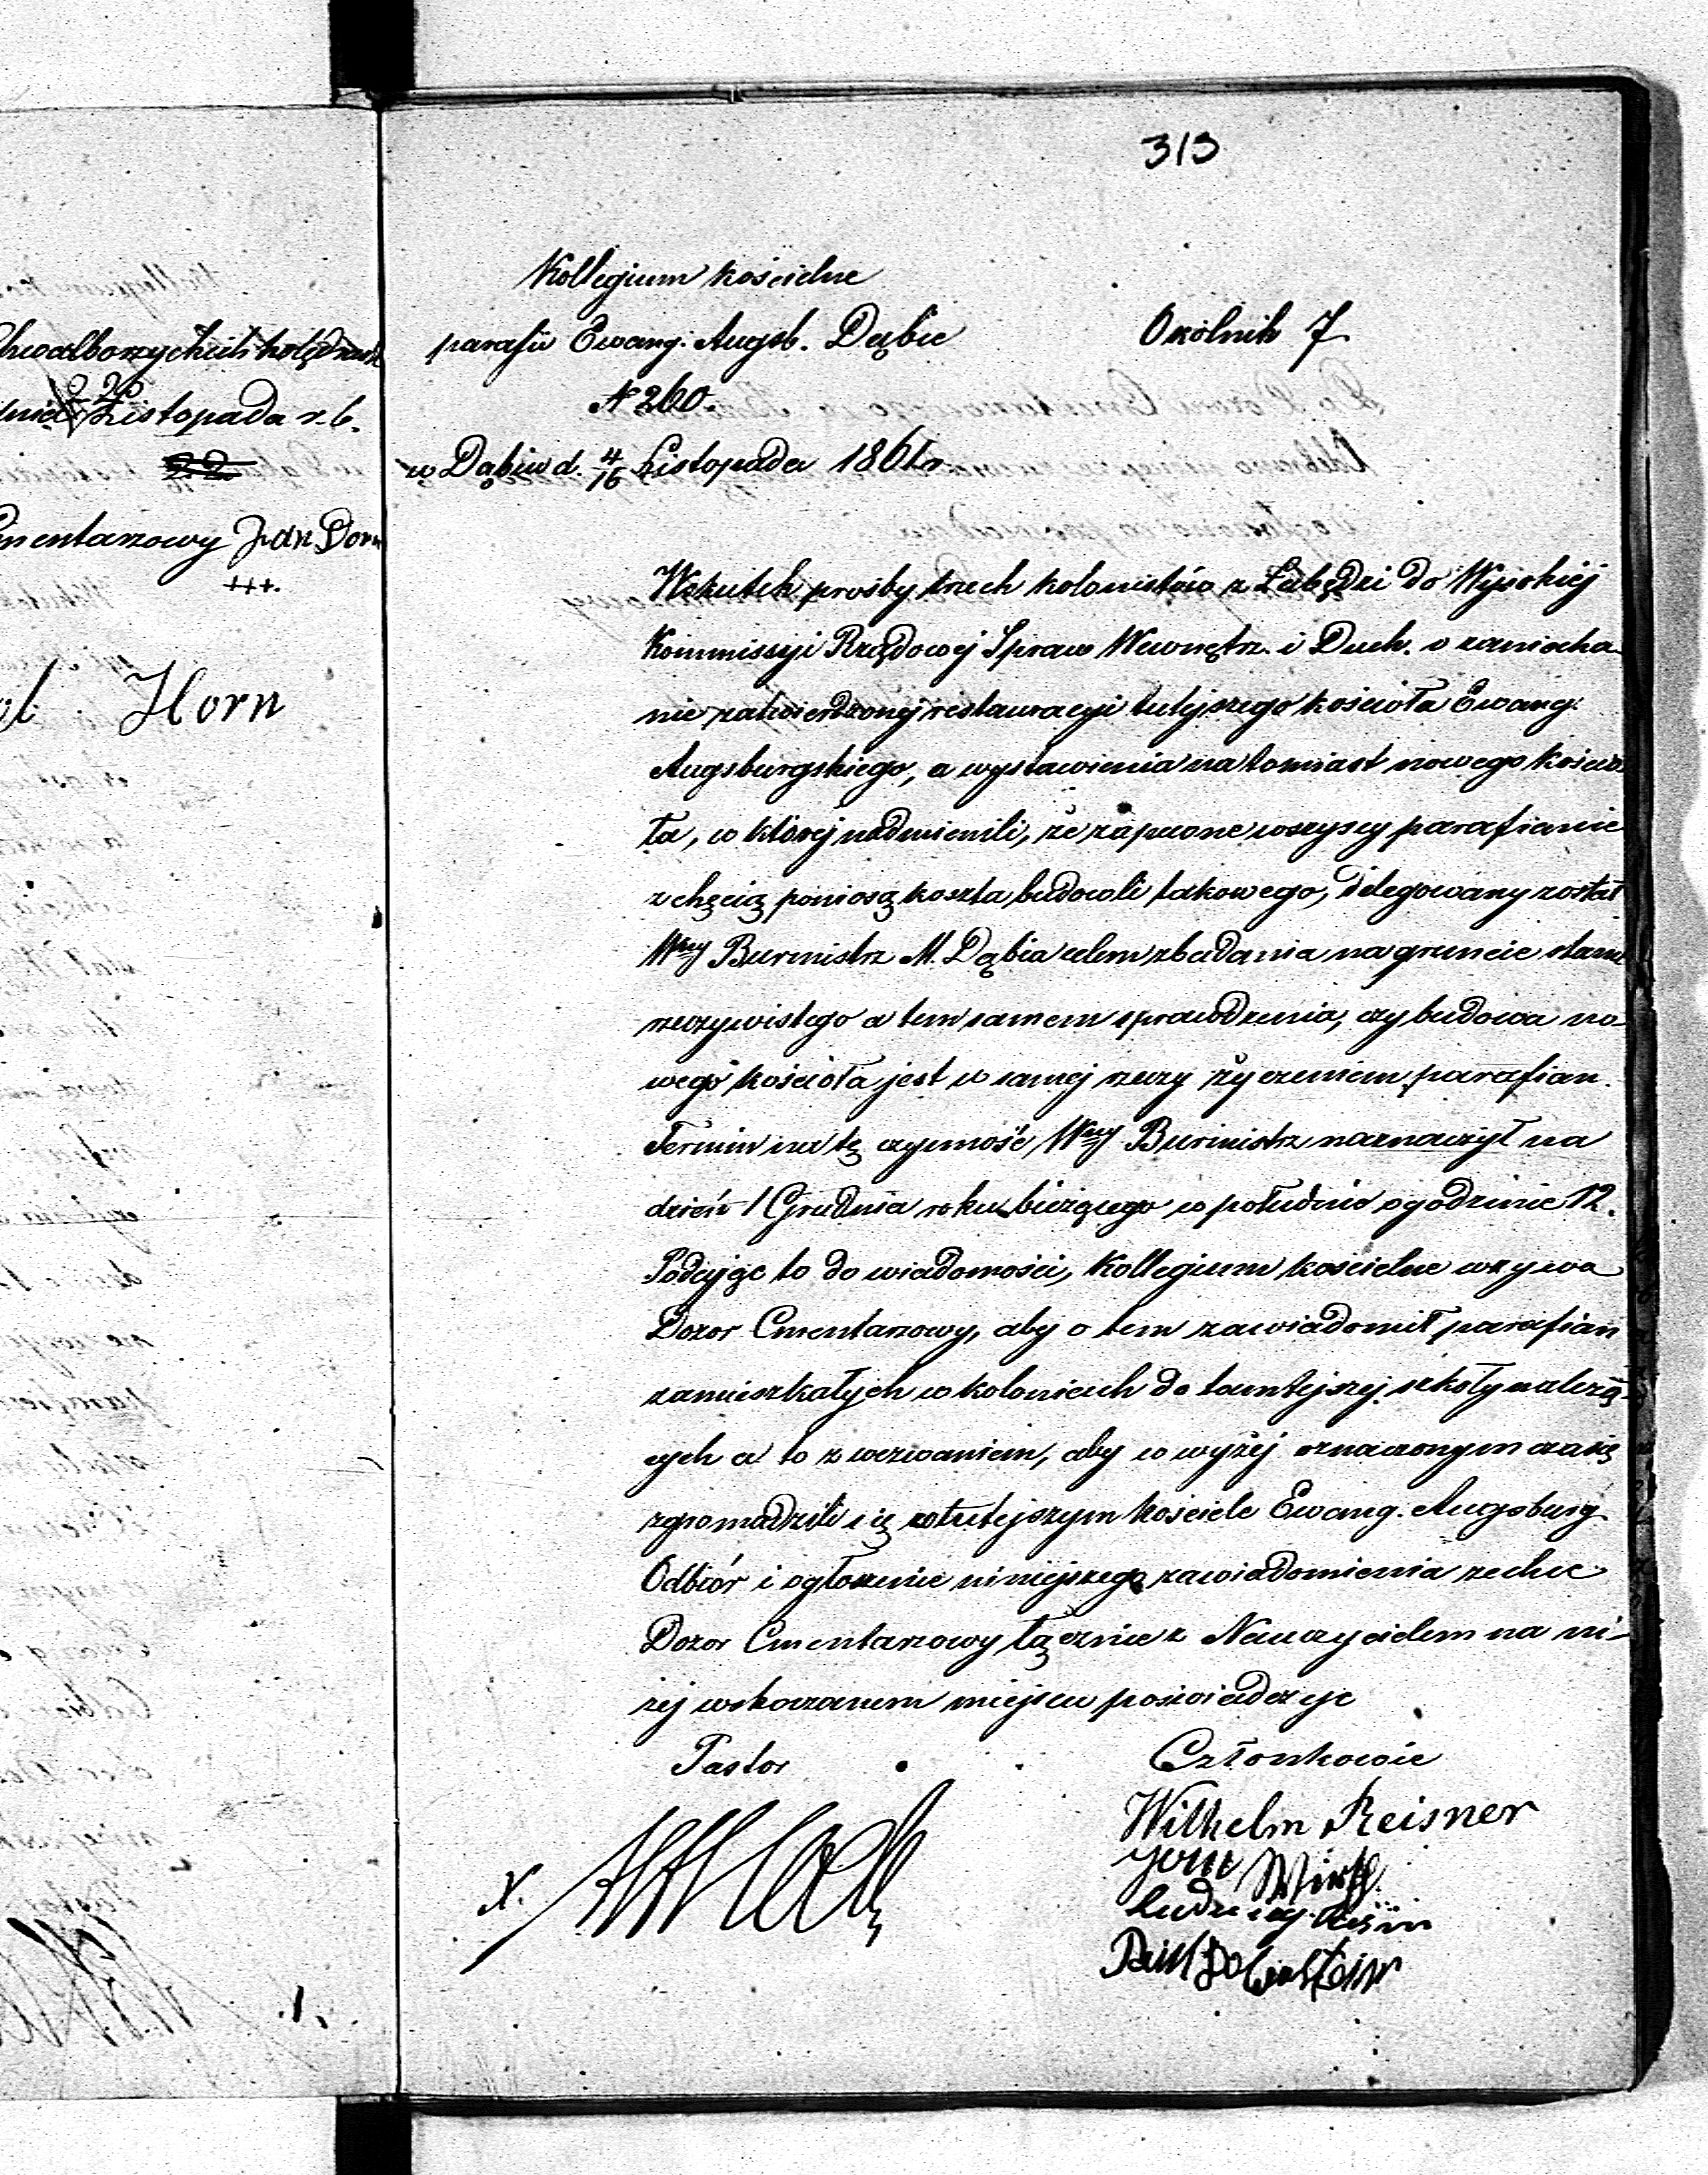 313
Kollegium kościelne
parafii Ewang. Augsb. Dąbie
Okólnik 7
N 260.
w Dąbiu d. 4/16 Listopada 1861 r.
Wskutek prośby trzech kolonistów z Łabędzi do Wysokiéj
Kommissyi Rządowej Spraw Wewnętrz. i Duch. o zaniecha-
nie zatwierdzonej restauracyi tutejszego kościoła Ewang:
Augsburgskiego, a wystawienia natomiast nowego kościo-
ła, w której nadmienili, że zapewne wszyscy parafianie
z chęcią poniosą koszta budowli takowego, delegowany został
Wny Burmistrz M. Dąbia celem zbadania na gruncie stanu
rzeczywistego a tem samem sprawdzenia, czy budowa no-
wego kościoła jest w samej rzeczy życzeniem parafian.
Termin na tę czynność Wny Burmistrz naznaczył na
dzień 1 Grudnia roku bieżącego w południe o godzinie 12.
Podając to do wiadomości, Kollegium kościelne wzywa
Dozor Cmentarzowy, aby o tem zawiadomił parafian
zamieszkałych w koloniach do tamtejszej szkoły należą-
cych a to z wezwaniem, aby w wyżéj oznaczonym czasie
zgromadzili się w tutejszym kościele Ewang. Augsburg.
Odbiór i ogłoszenie niniejszego zawiadomienia zechce
Dozor Cmentarzowy łącznie z Nauczycielem na ni-
żej wskazanem miejscu poświadczyć
Pastor
Członkowie
Wilhelm Reisner
X.
Listopada r. b.
22
Cmentarzowy Jan Dorn
+++.
Horn